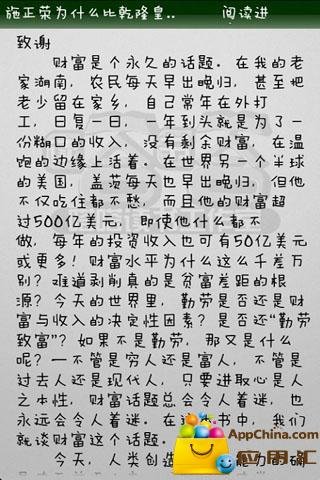 施正荣为什么比乾隆皇.. 阅读进
致谢
财富是个永久的话题。在我的老
家湖南，农民每天早出晚归，甚至把
老少留在家乡，自己常年在外打
工，日复一日，一年到头就是为了一
份糊口的收入，没有剩余财富，在温
饱的边缘上活着。在世界另一个半球
的美国，盖茨每天也早出晚归，但他
不仅吃住都不愁，而且他的财富超
过500亿美元，即使他什么都不
做，每年的投资收入也可有50亿美元
或更多！财富水平为什么这么千差万
别？难道剥削真的是贫富差距的根
源？今天的世界里，勤劳是否还是财
富与收入的决定性因素？是否还“勤劳
致富”？如果不是勤劳，那又是什么
呢？一不管是穷人还是富人，不管是
过去人还是现代人，只要进取心是人
之本性，财富话题总会令人着迷，也
永远会令人着迷。在这书中，我们
就谈财富这个话题。
今天，人类创造能力的确
AppChina.com
应用汇